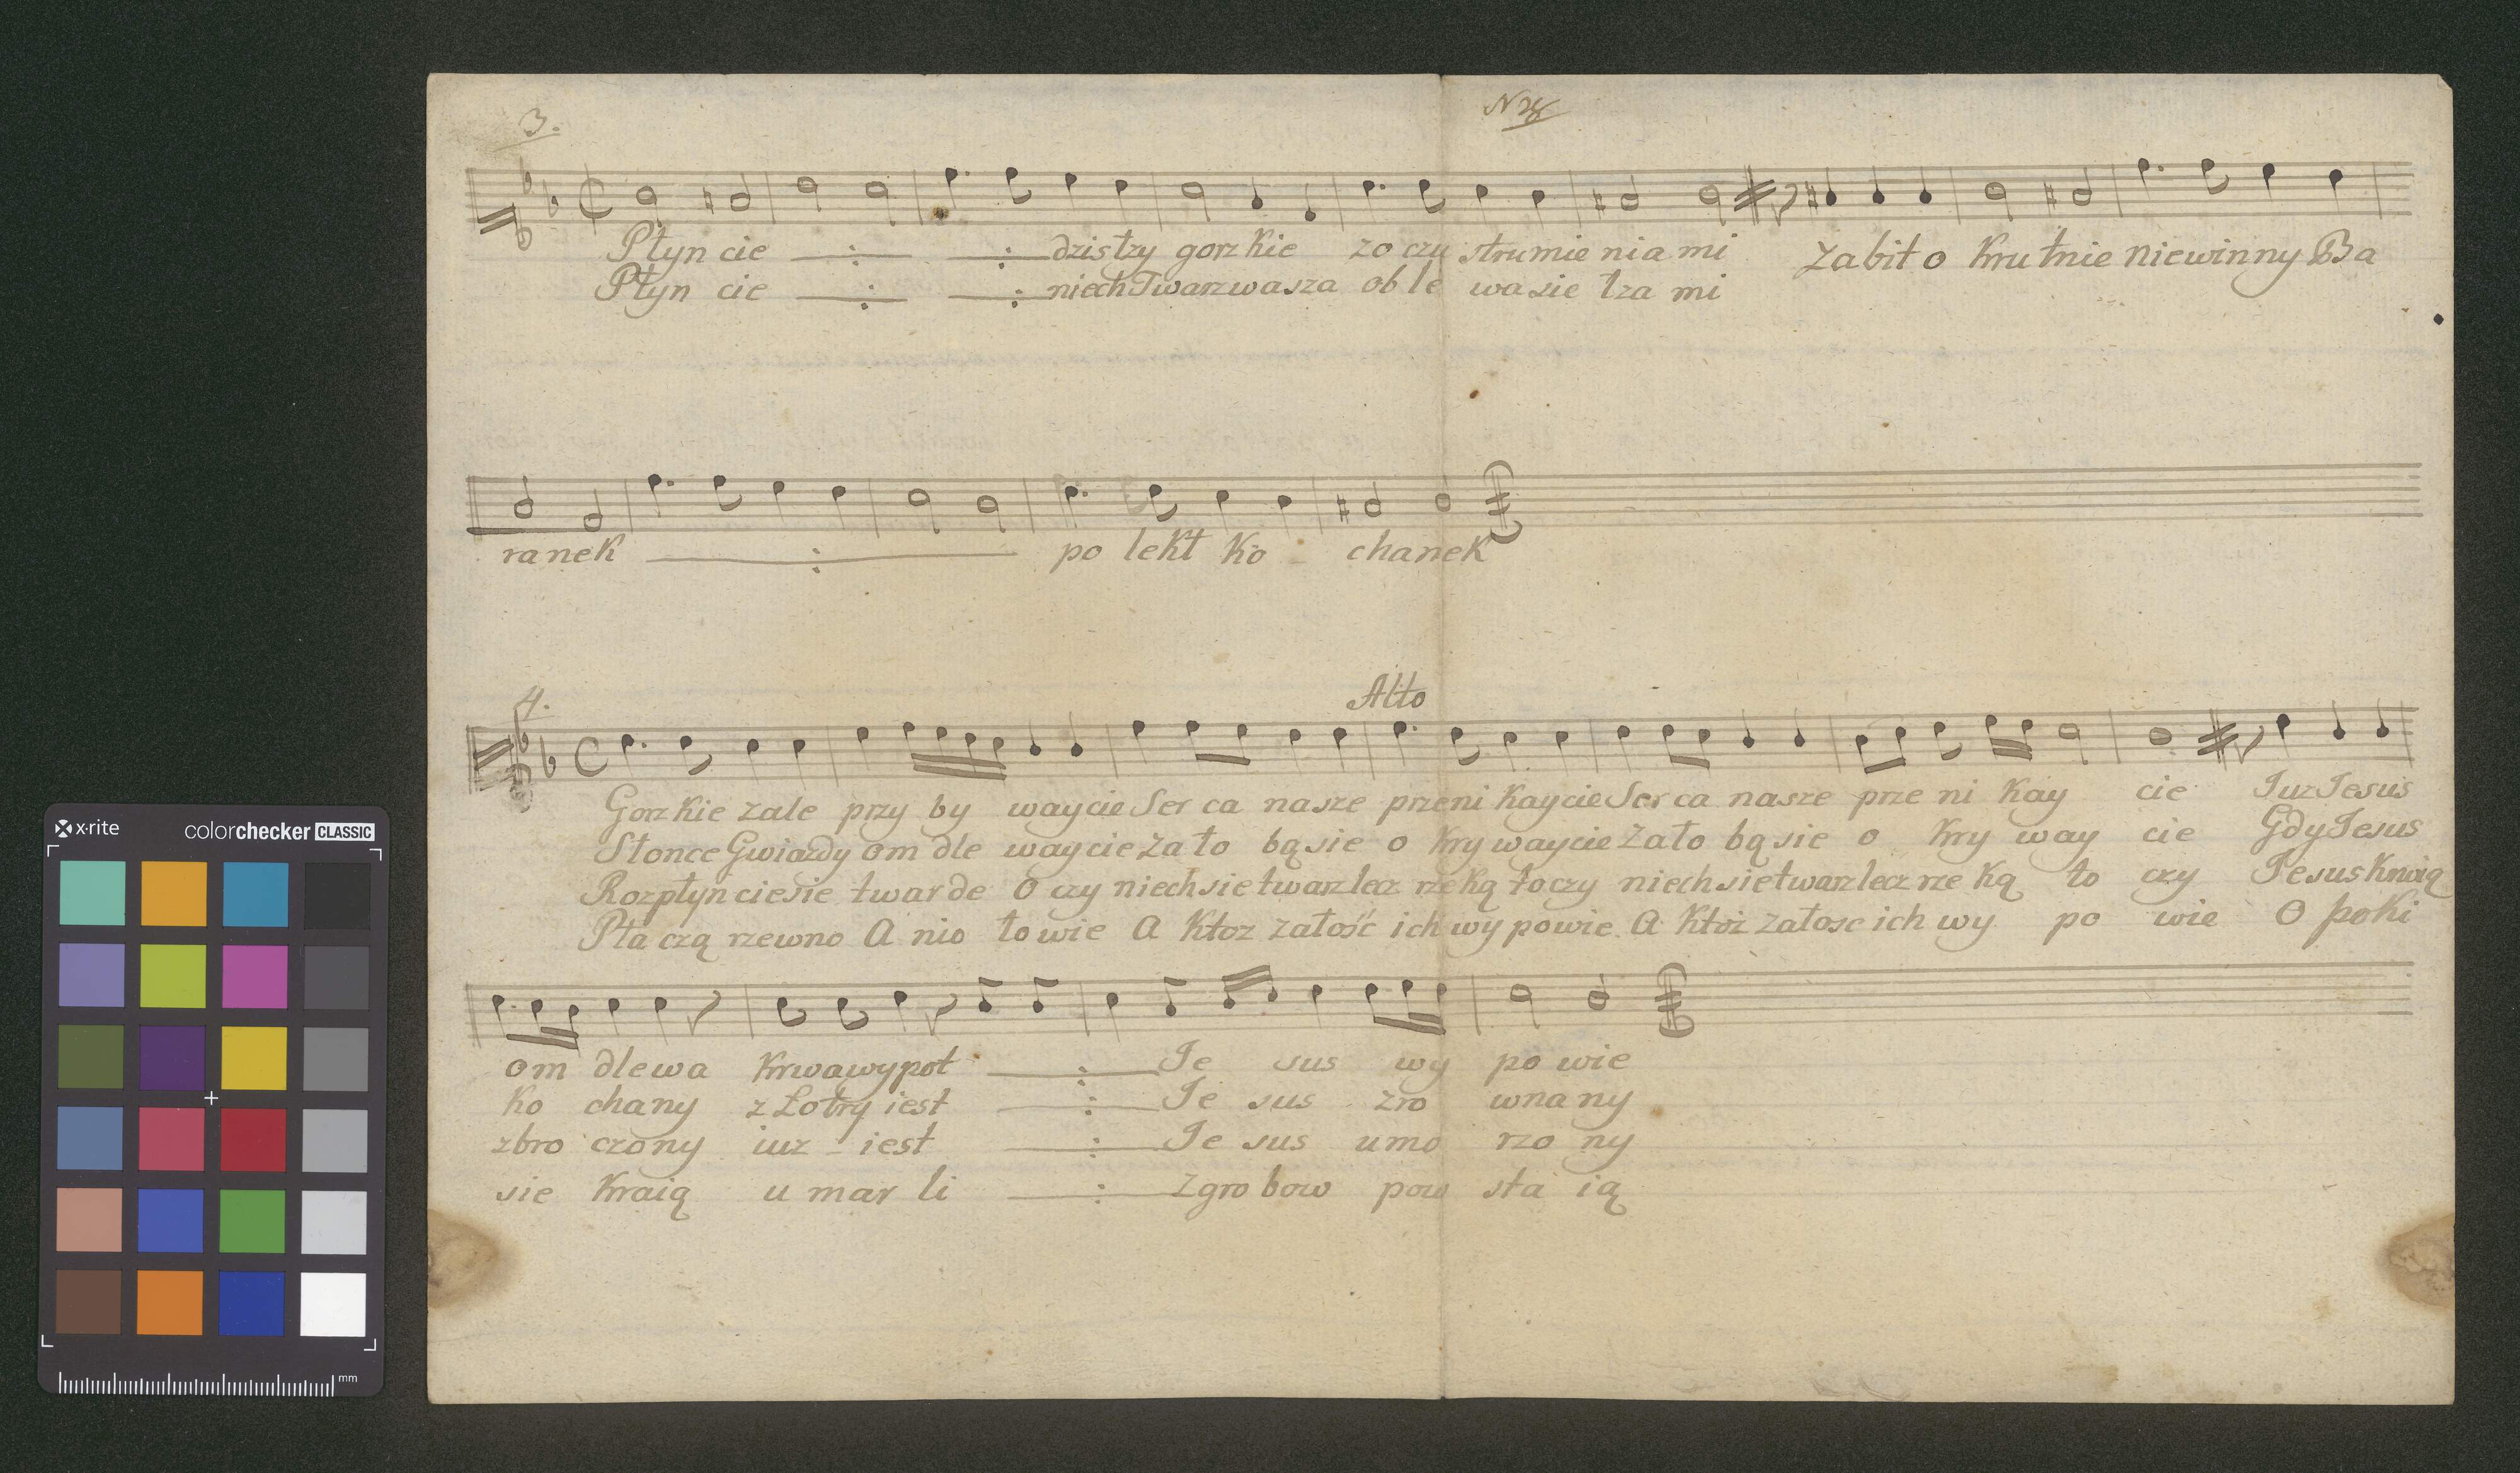 3.
Płyn cie — : — — : — dzis łzy gorz kie zo czu strumie nia mi Zabito Kru tnie niewinny Ba
Płyn cie — : — — : — niech Twarz wasza ob le wa sie łza mi
ranek — : — po lekł Ko - chanek
4.
Alto
Gorz kie zale przy by waycie Ser ca nasze przeni kaycie Ser ca nasze prze ni kay cie Juz Jesus
Słonce Gwiazdy om dle way cie Za ło bą sie o kry waycie Zało bą sie o kry way cie Gdy Jesus
Rozpłyn ciesie twar de O czy niech sie twarz lecz rze ką toczy niech sie twarz lecz rze ką to czy Jesus
Pła czą rzewno A nio łowie A Ktoz załość ich wy powie A Ktoż załosc ich wy po wie O poki
om dlewa Krwawy pot — : — Je sus wy po wie
ko chany z Łotry iest — : — Je sus zro wna ny
zbro czony iuz - iest — : — Je sus umo rzo ny
sie Kraią u mar li — : — Z gro bow pow sta ią
x·rite
colorchecker CLASSIC
mm